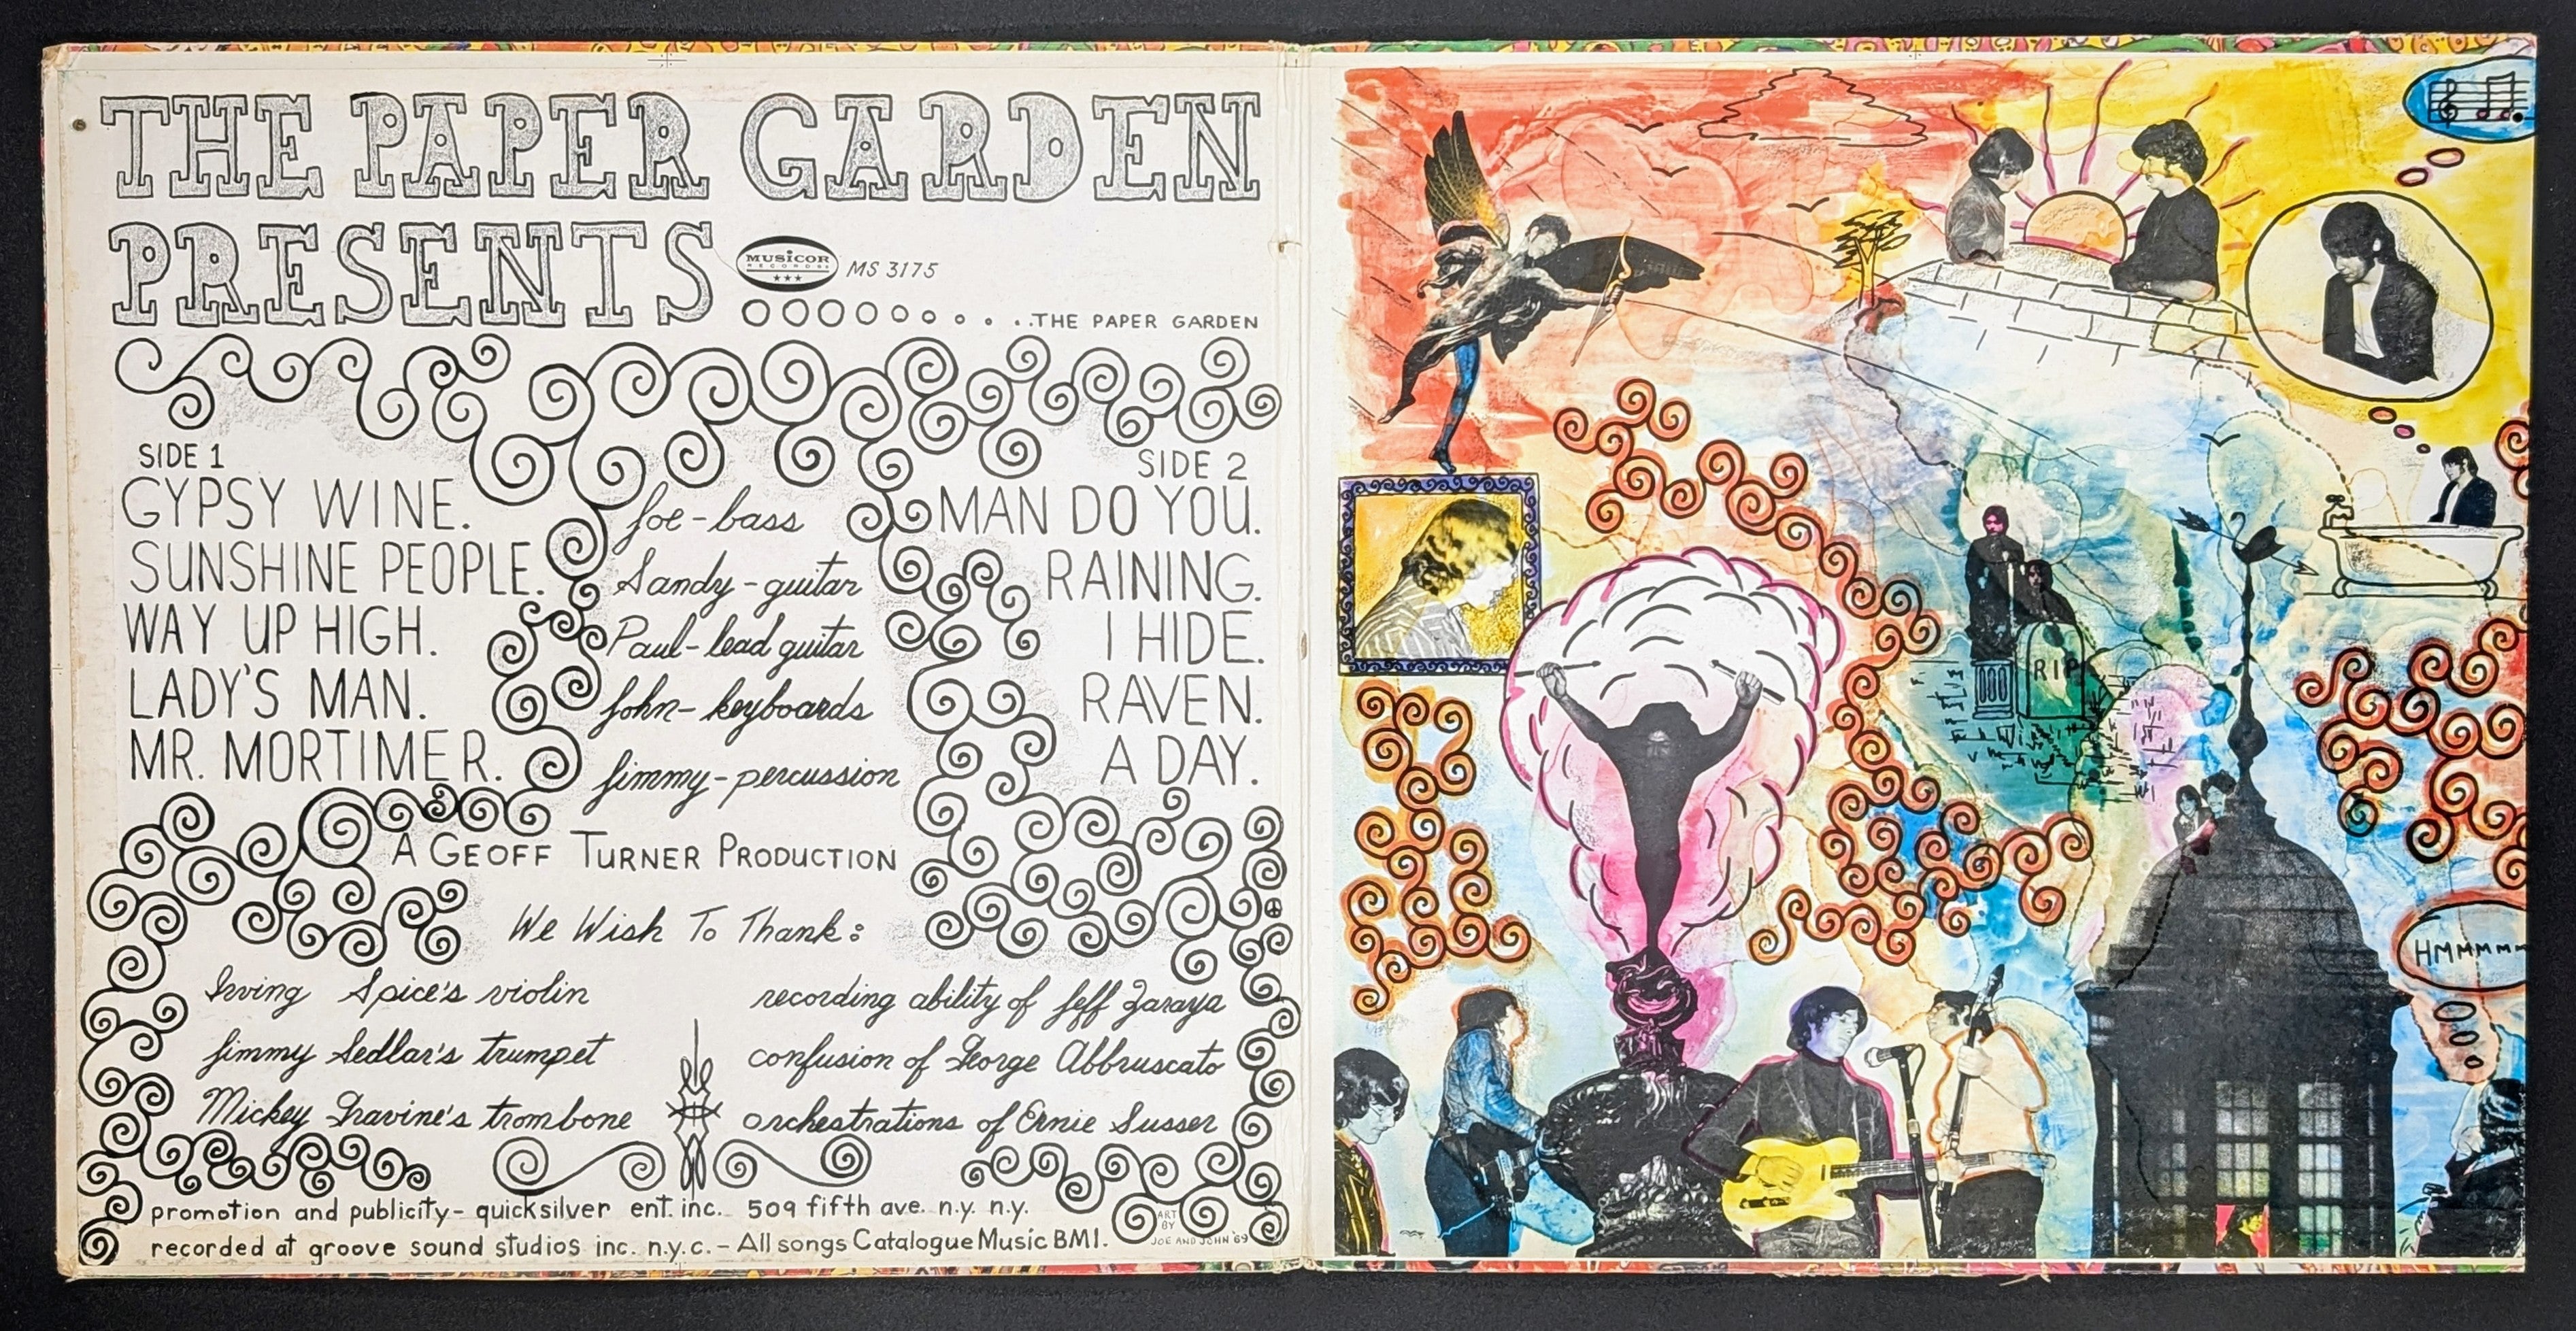 THE PAPER GARDEN
PRESENTS
MUSICOR
RECORDS
MS 3175
...THE PAPER GARDEN
SIDE 1
GYPSY WINE.
SUNSHINE PEOPLE.
WAY UP HIGH.
LADY'S MAN.
MR. MORTIMER.
Joe - bass
Sandy - guitar
Paul - lead guitar
John - keyboards
Jimmy - percussion
SIDE 2
MAN DO YOU.
RAINING.
I HIDE.
RAVEN.
A DAY.
A GEOFF TURNER PRODUCTION
We Wish To Thank:
Irving Spice's violin
Jimmy Sedlar's trumpet
Mickey Gravine's trombone
recording ability of Jeff Zaraya
confusion of George Abbruscato
orchestrations of Ernie Susser
promotion and publicity - quicksilver ent. inc. 509 fifth ave. n.y. n.y.
recorded at groove sound studios inc. n.y.c. - All songs Catalogue Music BMI.
ART
BY
JOE AND JOHN '69
RIP
HMMMMM